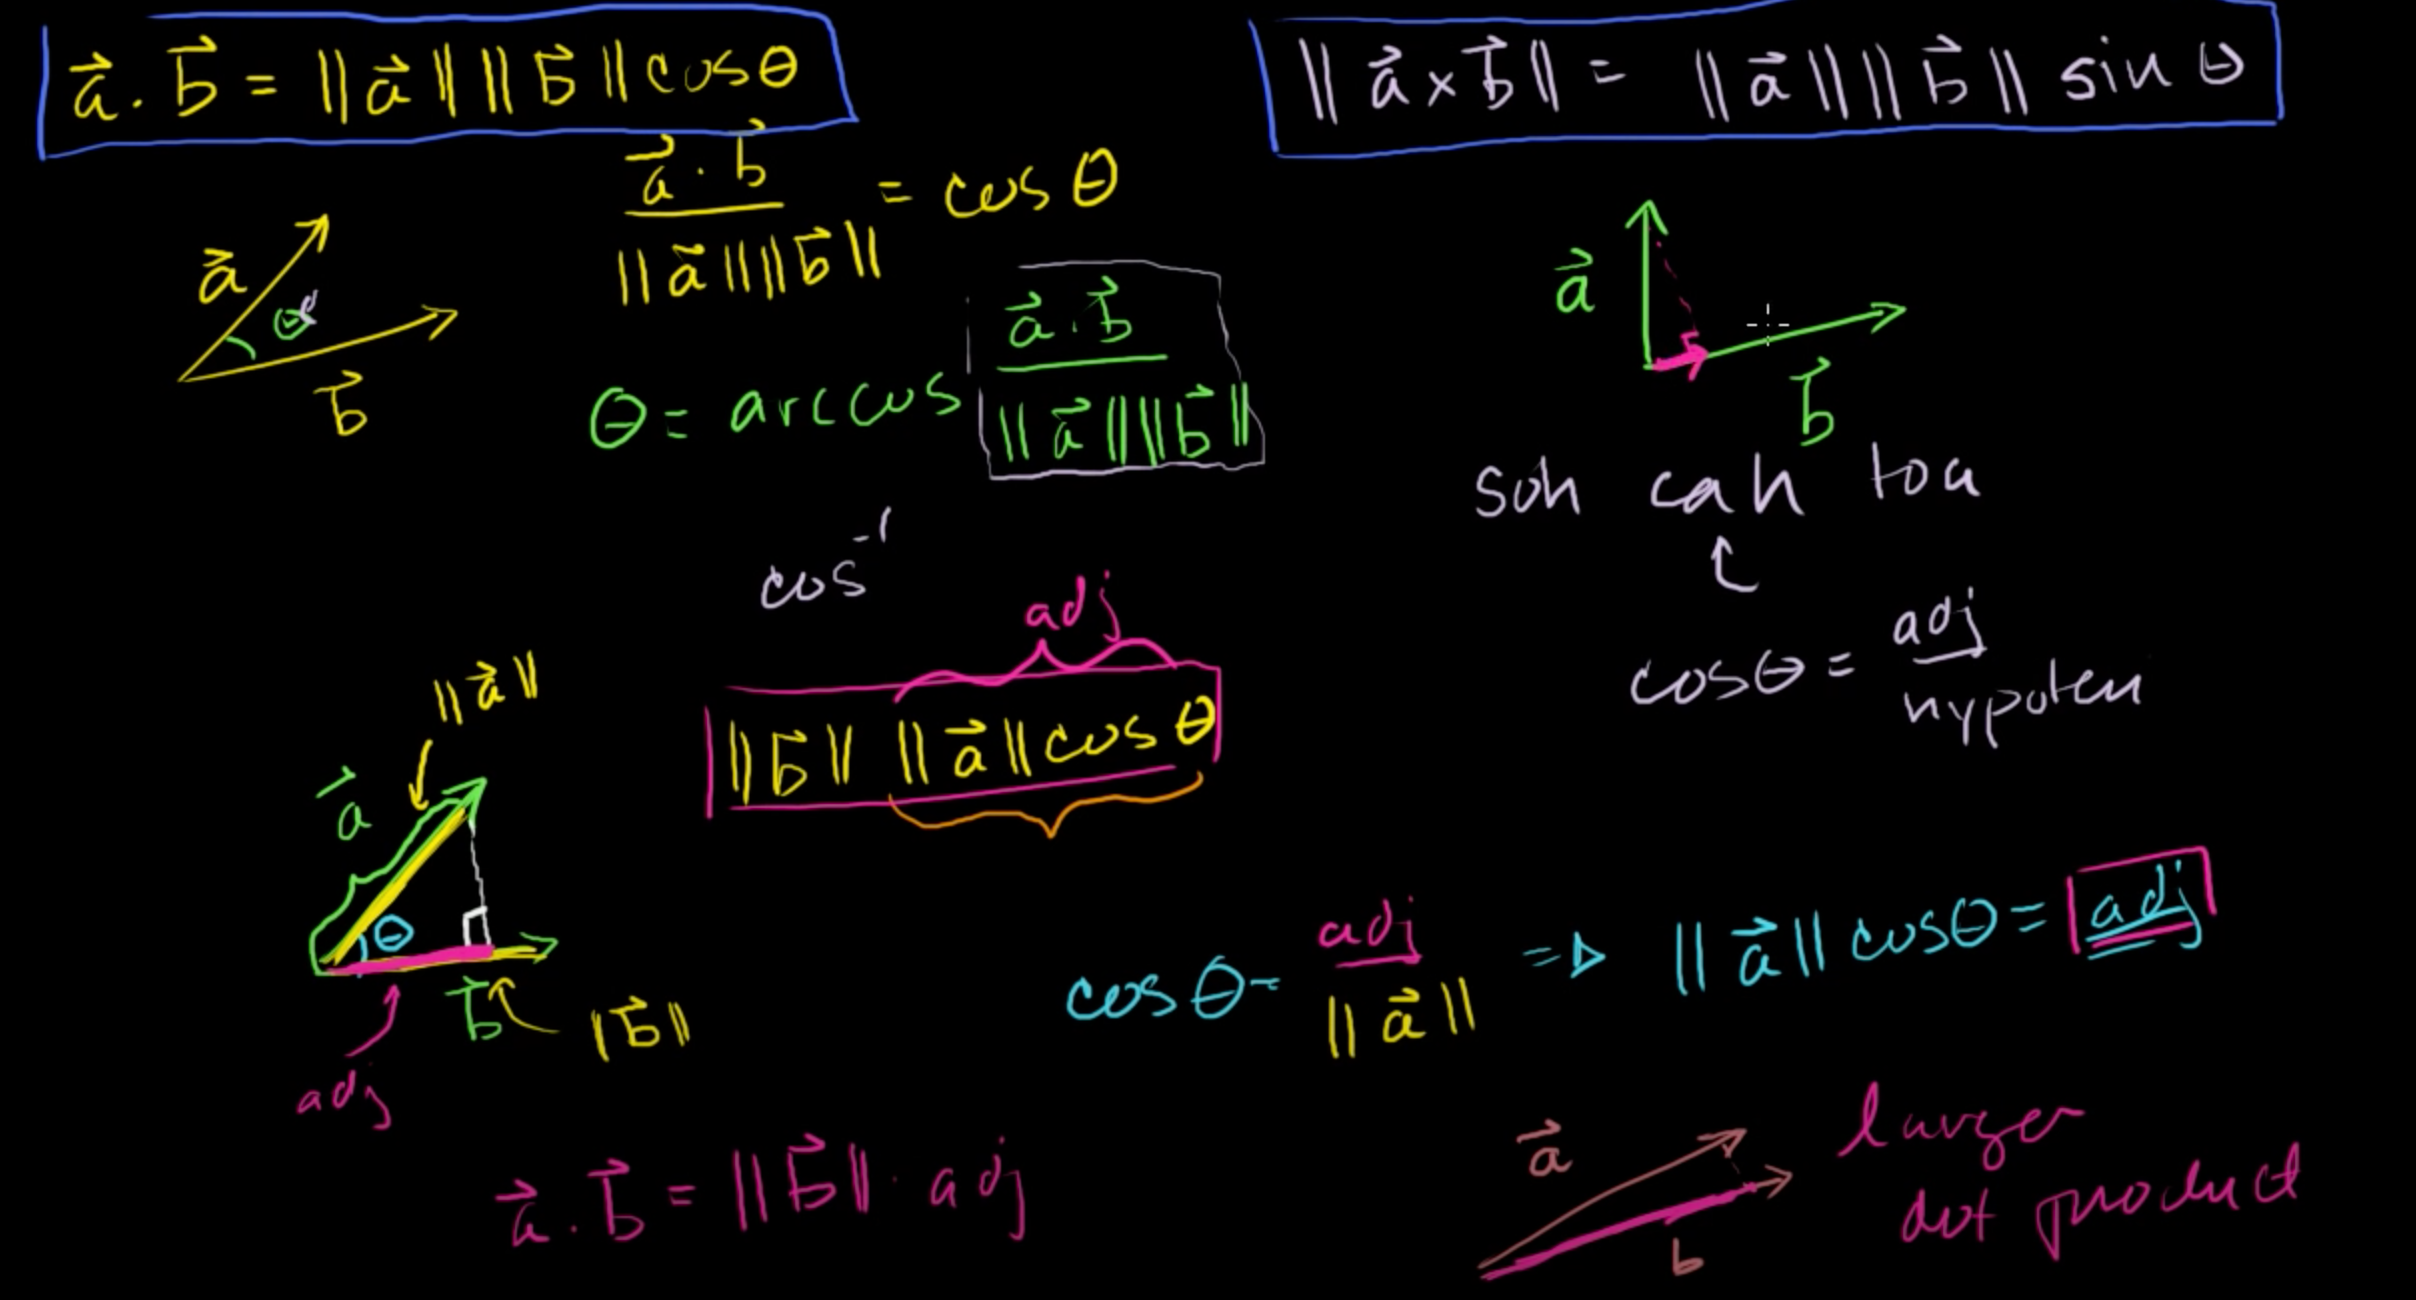 a⃗ . b⃗ = ||a⃗|| ||b⃗|| cosθ
||a⃗ × b⃗|| = ||a⃗|| ||b⃗|| sin θ
a⃗ · b⃗ / ||a⃗|| ||b⃗|| = cos θ
a⃗
θ
b⃗
θ = arccos a⃗ . b⃗ / ||a⃗|| ||b⃗||
a⃗
b⃗
soh cah toa
cos⁻¹
cosθ = adj / hypoten
adj
||b⃗|| ||a⃗|| cos θ
||a⃗||
a⃗
θ
b⃗
||b⃗||
adj
cos θ = adj / ||a⃗|| => ||a⃗|| cosθ = adj
a⃗ . b⃗ = ||b⃗|| · adj
a⃗
b
larger
dot product